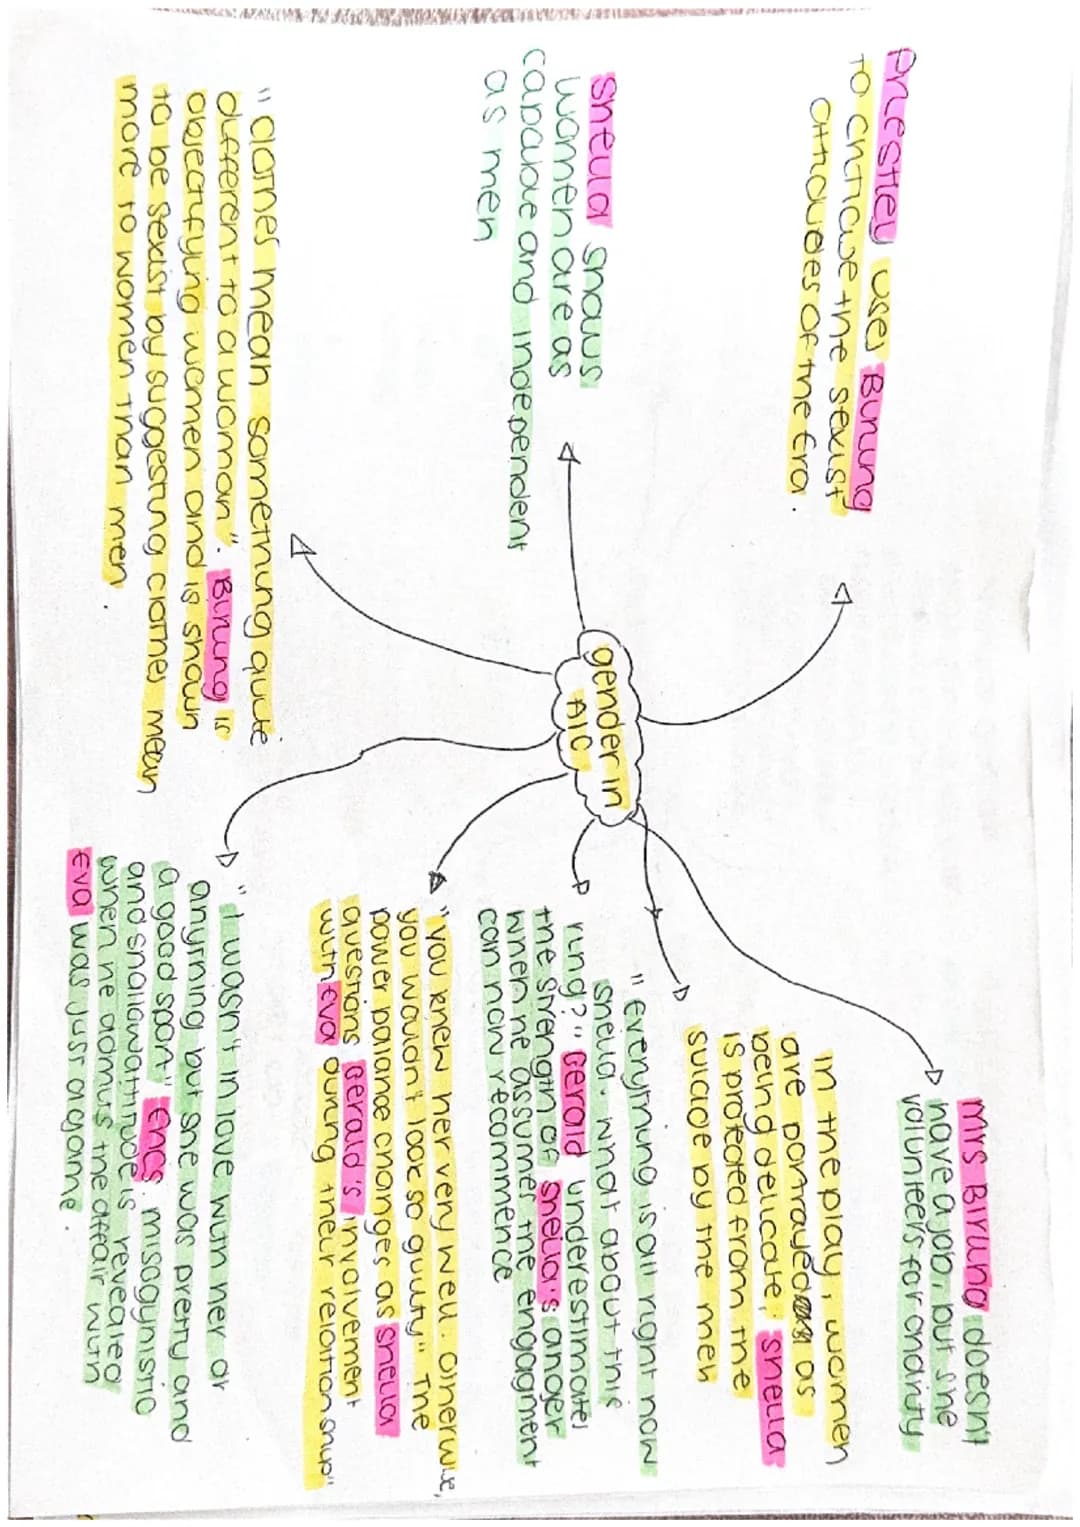 gender in
AIC
Priestley uses Birling
to critique the sexist
attitudes of the era.
Sheila shows
women are as
capable and independent
as men
"clothes mean something quite
different to a woman". Birling is
objectifying women and is shown
to be sexist by suggesting clothes mean
more to women than men.
Mrs Birling doesn't
have a job, but she
volunteers for charity
in the play, women
are portrayed as
being delicate, sheila
is protected from the
suicide by the men
"everything is all right now
sheila. what about this
ring?" Gerald underestimates
the strength of sheila's anger
when he assumes the engagment
can now recommence
"you knew her very well. otherwise,
you wouldn't look so guilty" The
power balance changes as sheila
questions Gerald's involvement
with Eva during their relationship"
"I wasn't in love with her or
anything but she was pretty and
a good sport" Erics misogynistic
and shallow attitude is revealed
when he admits the affair with
Eva was just a game.